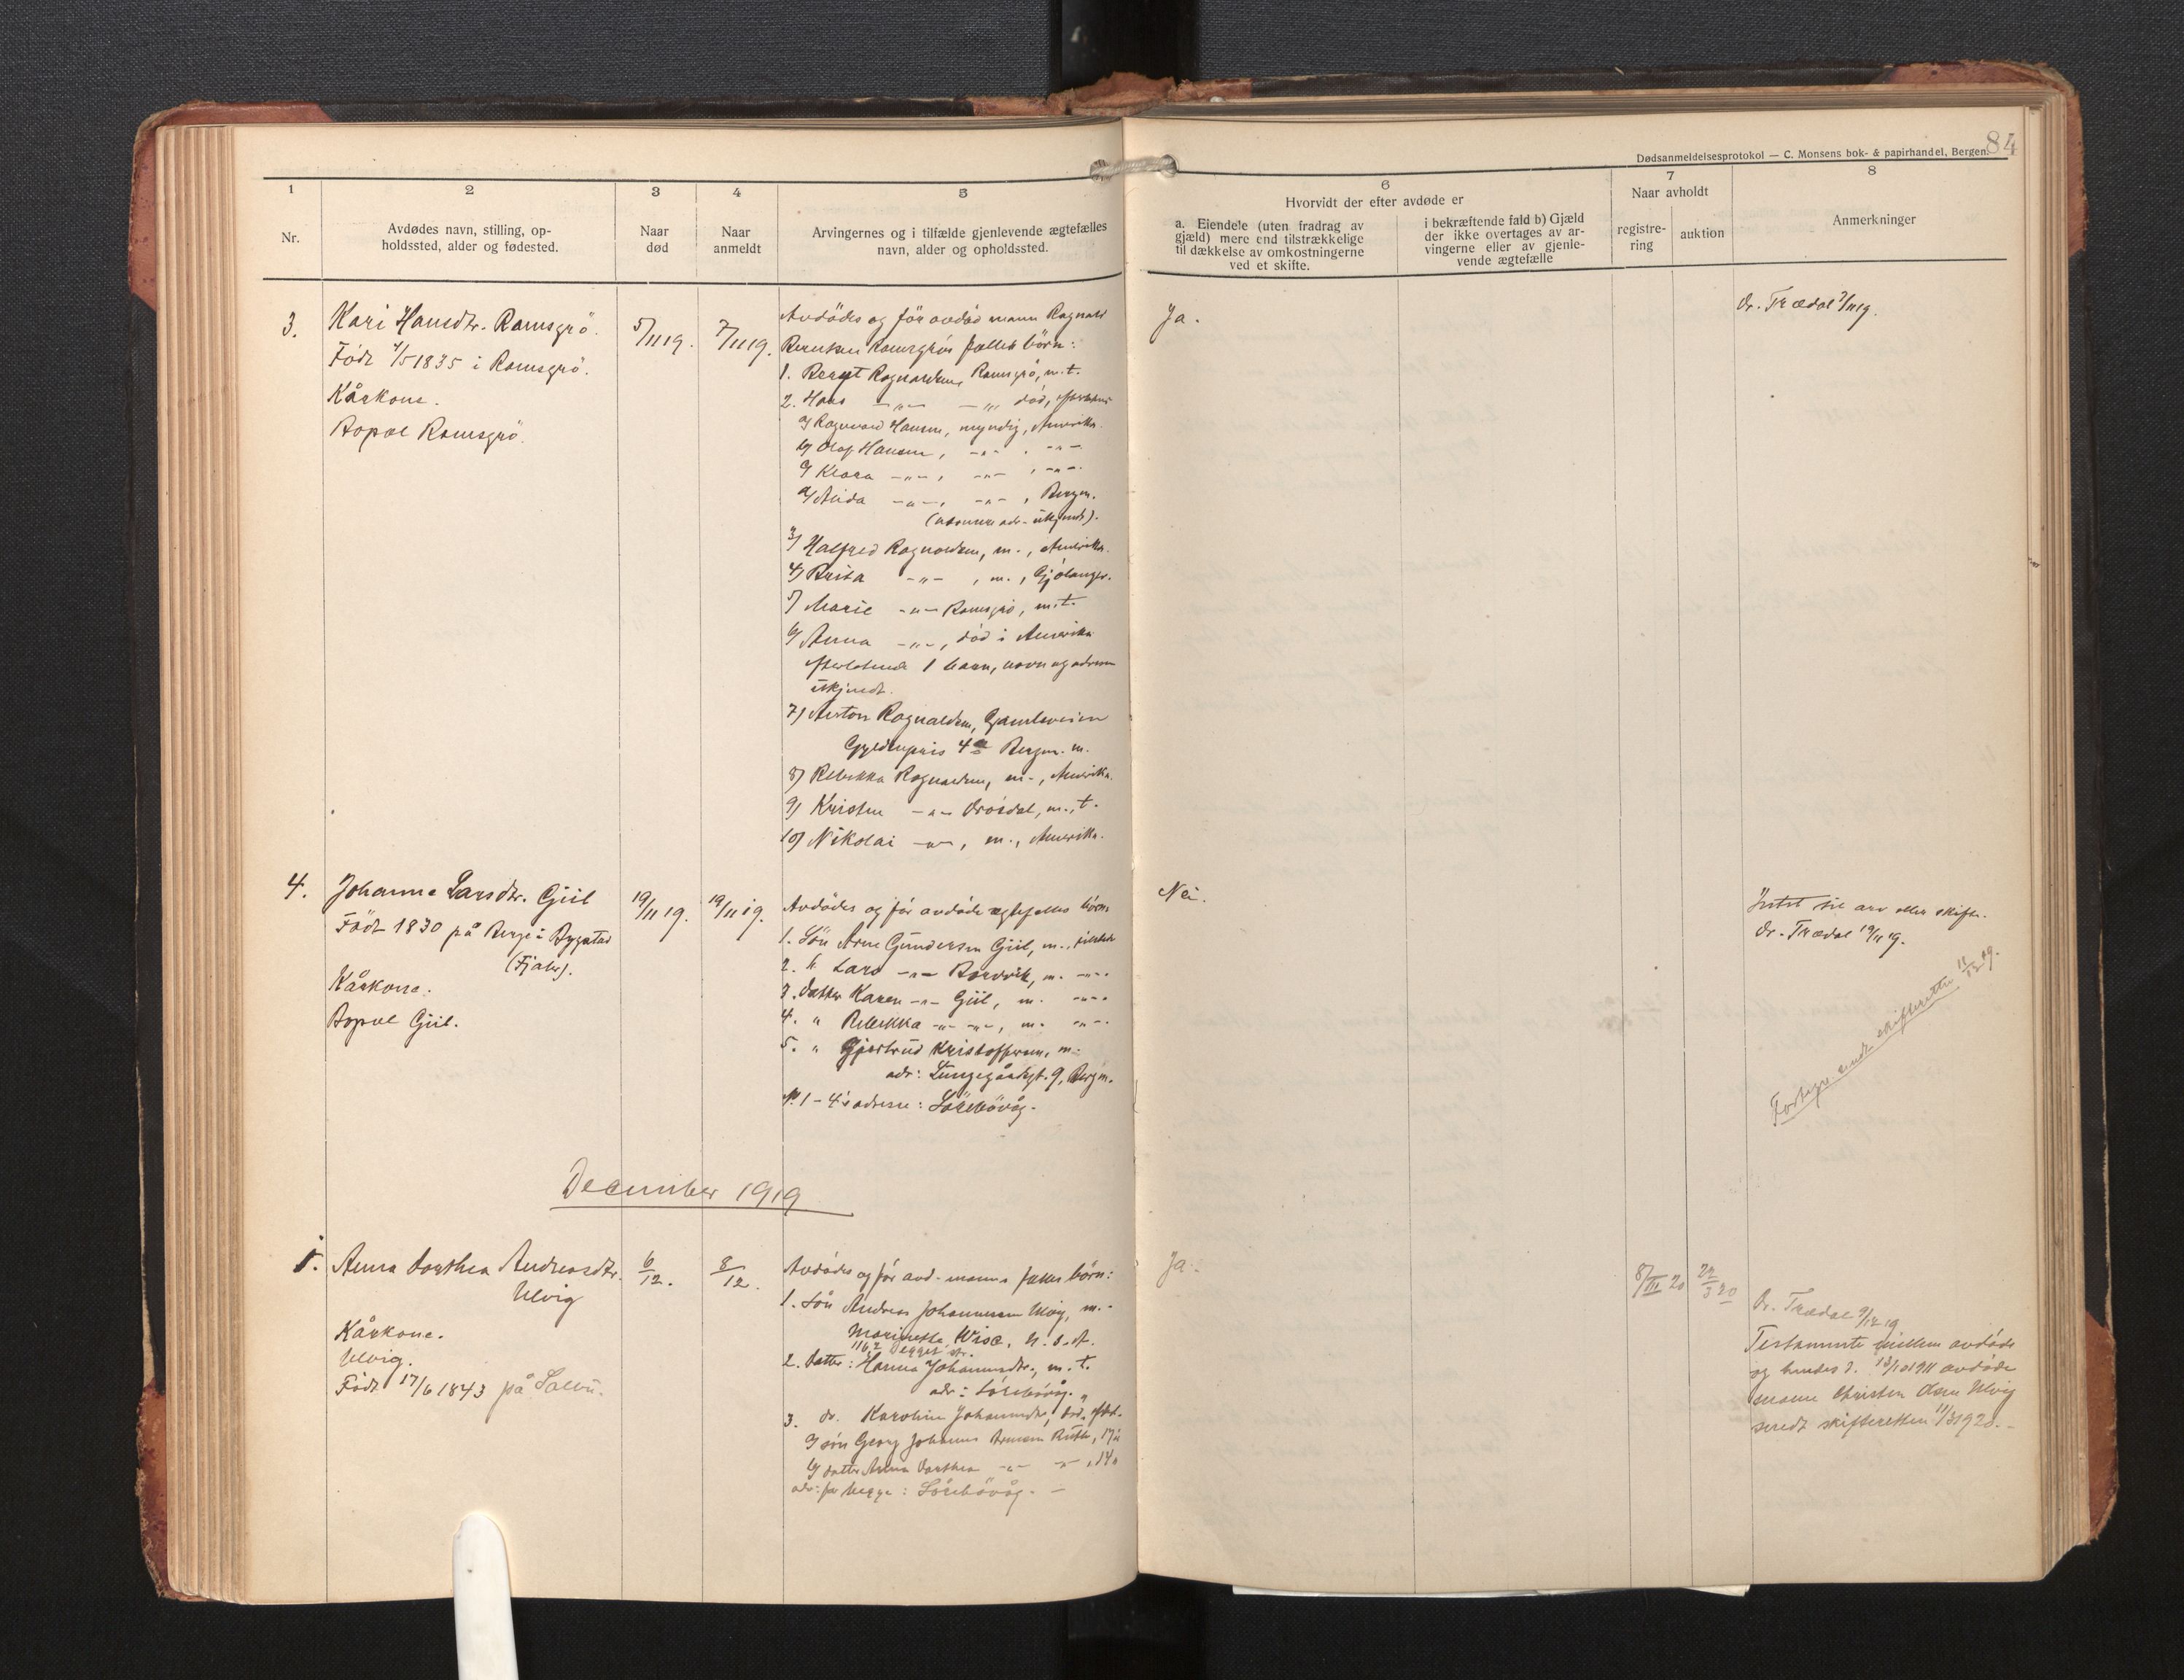 84
Dødsanmeldelsesprotokol — C. Monsens bok- & papirhandel, Bergen.
1
2
3
4
5
6
7
8
Nr.
Avdødes navn, stilling, op-
holdssted, alder og fødested.
Naar
død
Naar
anmeldt
Arvingernes og i tilfælde gjenlevende ægtefælles
navn, alder og opholdssted.
Hvorvidt der efter avdøde er
a. Eiendele (uten fradrag av
gjæld) mere end tilstrækkelige
til dækkelse av omkostningerne
ved et skifte.
i bekræftende fald b) Gjæld
der ikke overtages av ar-
vingerne eller av gjenle-
vende ægtefælle
Naar avholdt
registre-
ring
auktion
Anmerkninger
3.
Kari Hansdtr. Ramsgrö.
Född 4/5 1835 i Ramsgrö.
Kårkone.
Bopæl Ramsgrö.
5/11 19.
7/11 19.
Avdödes og för avdöd mann Ragnald
Berntsen Ramsgrös fælles börn:
1. Bernt Ragnaldsen Ramsgrö, m.t.
2. Hans -"- -"- död, efterladt
a/ Ragnvald Hansen, myndig, Amerika
b/ Olaf Hansen, -"- , -"-
c/ Klara -"-, -"- , -"-.
d/ Alida -"-, -"- , Bergen.
(nærmere adr. ukjendt).
3/ Halfred Ragnaldsen, m., Amerika.
4/ Brita -"- , m., Gjölanger.
5/ Marie -"- Ramsgrö, m.t.
6/ Anna -"-, död i Amerika
efterlatende 1 barn, navn og adresse
ukjendt.
7/ Anton Ragnaldsen, Gamleveien
Gyldenpris 4 Bergen. m.
8/ Rebekka Ragnaldsen, m., Amerika.
9/ Kristen -"- Drösdal, m., t.
10/ Nikolai -"-, m., Amerika.
Ja.
Dr. Trædal 7/11 19.
4.
Johanne Larsdtr. Giil
Född 1830 på Berge i Bygstad
(Fjaler).
Kårkone.
Bopæl Giil.
19/11 19.
19/11 19.
Avdödes og för avdöde ægtefælles börn
1. Sön Arne Gundersen Giil, m.,
2. " Lars -"- m. -"-
3. Datter Karen -"- Giil, m. -"-
4. " Rebekka -"- -"-, m. -"-
5. " Gjertrud Kristoffersen, m.
adr: Lungegårdsgt. 9, Bergen.
No 1-4's adresse: Sörebövåg.
Nei.
Intet til arv eller skifte.
Dr. Trædal 19/11 19.
Fortegn. sendt skifteretten 11/12 19.
December 1919
1.
Anna Dorthea Andreasdtr.
Ulvig
Kårkone.
Ulvig.
Född 17/6 1843 på
6/12.
8/12.
Avdödes og för avd. manns fælles börn:
1. Sön Andreas Johannesen Ulvig, m.
Marinette, Wisc. U.S.A.
1162
2. Datter: Hanna Johannesdtr, m. t.
adr: Sörebövåg.
3. do. Karoline Johannesdtr, död, efterl.
a/ sön Georg Johannes, 17 år
b/ datter Anna Dorthea -"- -"-, 14 "
adr: for begge: Sörebövåg. —
Ja.
8/III 20
22/3 20
Dr. Trædal 9/12 19
Testamente mellem avdöde
og hendes d. 13/10 1911 avdöde
mann Christen Olsen Ulvig
sendt skifteretten 11/3 1920.-